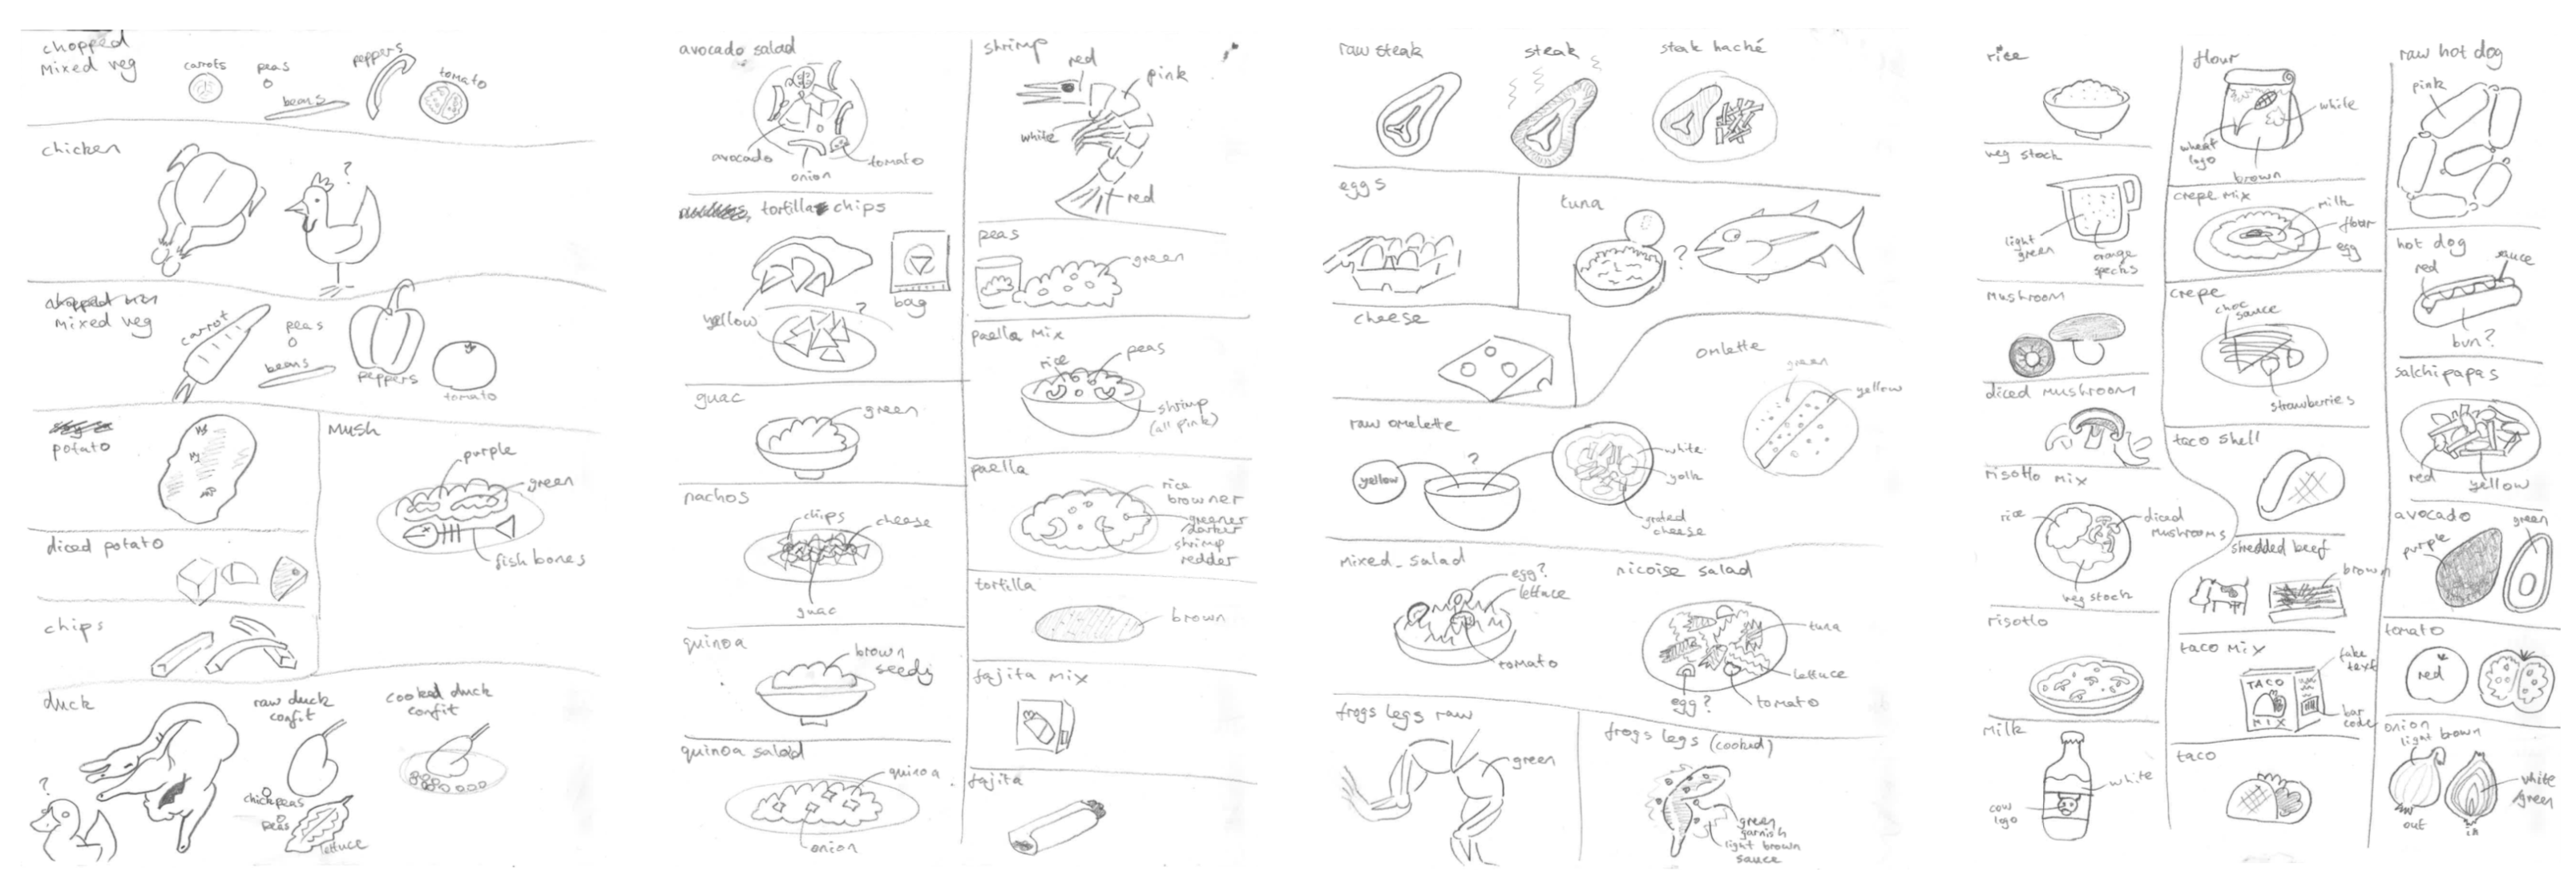 chopped
Mixed veg
carrots
peas
beans
peppers
tomato
chicken
?
mixed veg
carrot
peas
beans
peppers
tomato
potato
Mush
purple
green
fish bones
diced potato
chips
duck
?
raw duck
confit
chickpeas
peas
lettuce
cooked duck
confit
avocado salad
avocado
onion
tomato
tortilla chips
yellow
?
bag
guac
green
nachos
chips
cheese
guac
quinoa
brown
seeds
quinoa salad
quinoa
onion
shrimp
red
pink
white
red
peas
green
paella Mix
rice
peas
shrimp
(all pink)
paella
rice
browner
greener
darker
shrimp
redder
tortilla
brown
fajita Mix
fajita
raw steak
steak
steak haché
eggs
tuna
?
cheese
omlette
green
yellow
raw omelette
yellow
?
white
yolk
grated
cheese
mixed salad
egg?
lettuce
tomato
nicoise salad
tuna
lettuce
egg?
tomato
frogs legs raw
green
frogs legs (cooked)
green
garnish
light brown
sauce
rice
veg stock
light
green
orange
specks
Mushroom
diced Mushroom
risotto Mix
rice
diced
mushrooms
veg stock
risotto
Milk
white
cow
logo
flour
white
wheat
logo
brown
crepe Mix
milk
flour
egg
crepe
choc
sauce
strawberries
taco shell
shredded beef
brown
taco Mix
TACO
MIX
fake
text
bar
code
taco
raw hot dog
pink
hot dog
red
sauce
bun?
salchipapas
red
yellow
avocado
purple
green
tomato
red
onion
light brown
white
/green
out
in